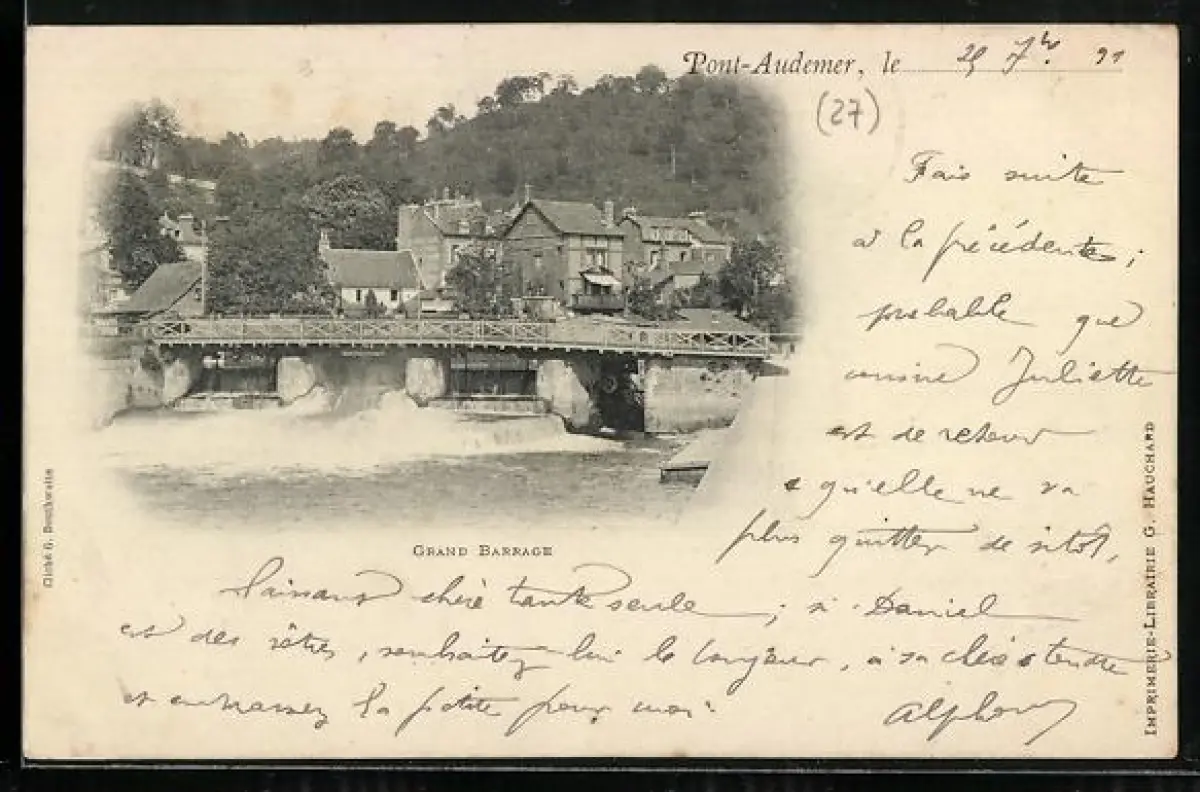 Pont-Audemer, le 25 7bre 91
(27)
Fais suite
à la précédente ;
probable que
cousine Juliette
est de retour
& qu'elle ne va
plus quitter de sitôt,
GRAND BARRAGE
laissant chère tante seule ; si Daniel
est des vôtres, souhaitez lui le bonjour, à sa chère
et embrassez la petite pour moi
Alphonse
Cliché G. Bouchwaite
IMPRIMERIE-LIBRAIRIE G. HAUCHARD